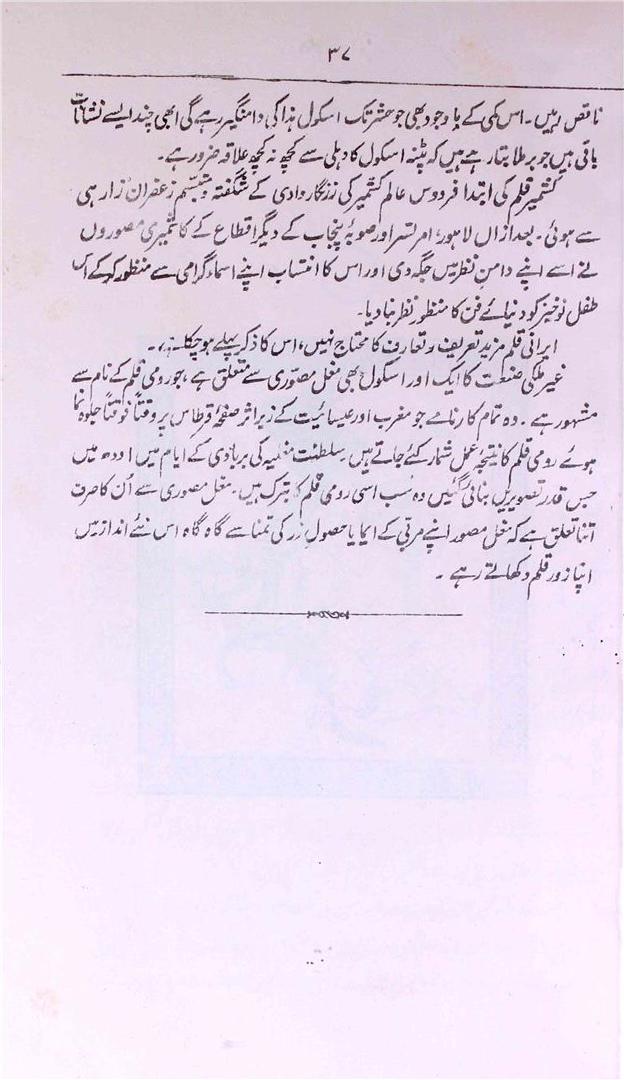 ۳۷
ناقص رہیں۔ اس کمی کے باوجود بھی جو حشر تک اسکول ہذا کی دامنگیر رہے گی ابھی چند ایسے نشانات
باقی ہیں جو برملا بتا رہے ہیں کہ پٹنہ اسکول کا دہلی سے کچھ نہ کچھ علاقہ ضرور ہے۔
کشمیر قلم کی ابتدا فردوس عالم کشمیر کی زرنگار وادی کے شگفتہ و متبسّم زعفران زار ہی
سے ہوئی۔ بعد ازاں لاہور، امرتسر اور صوبۂ پنجاب کے دیگر اقطاع کے کاشمیری مصوروں
نے اسے اپنے دامنِ نظر میں جگہ دی اور اس کا انتساب اپنے اسماء گرامی سے منظور کر کے اس
طفل نوخیز کو دنیائے فن کا منظورِ نظر بنا دیا۔
ایرانی قلم مزید تعریف و تعارف کا محتاج نہیں، اس کا ذکر پہلے ہو چکا ہے۔
غیر ملکی صنعت کا ایک اور اسکول بھی مغل مصوّری سے متعلق ہے، جو رومی قلم کے نام سے
مشہور ہے۔ وہ تمام کارنامے جو مغرب اور عیسائیت کے زیر اثر صفحۂ قرطاس پر وقتاً فوقتاً جلوہ نما
ہوئے رومی قلم کا نتیجۂ عمل شمار کئے جاتے ہیں۔ سلطنت مغلیہ کی بربادی کے ایام میں اودھ میں
جس قدر تصویریں بنائی گئیں وہ سب اسی رومی قلم کا تبرک ہیں۔ مغل مصوری سے اُن کا صرف
اتنا تعلق ہے کہ مغل مصور اپنے مربّی کے ایما یا حصول زر کی تمنا سے گاہ گاہ اس نئے انداز میں
اپنا زور قلم دکھاتے رہے۔